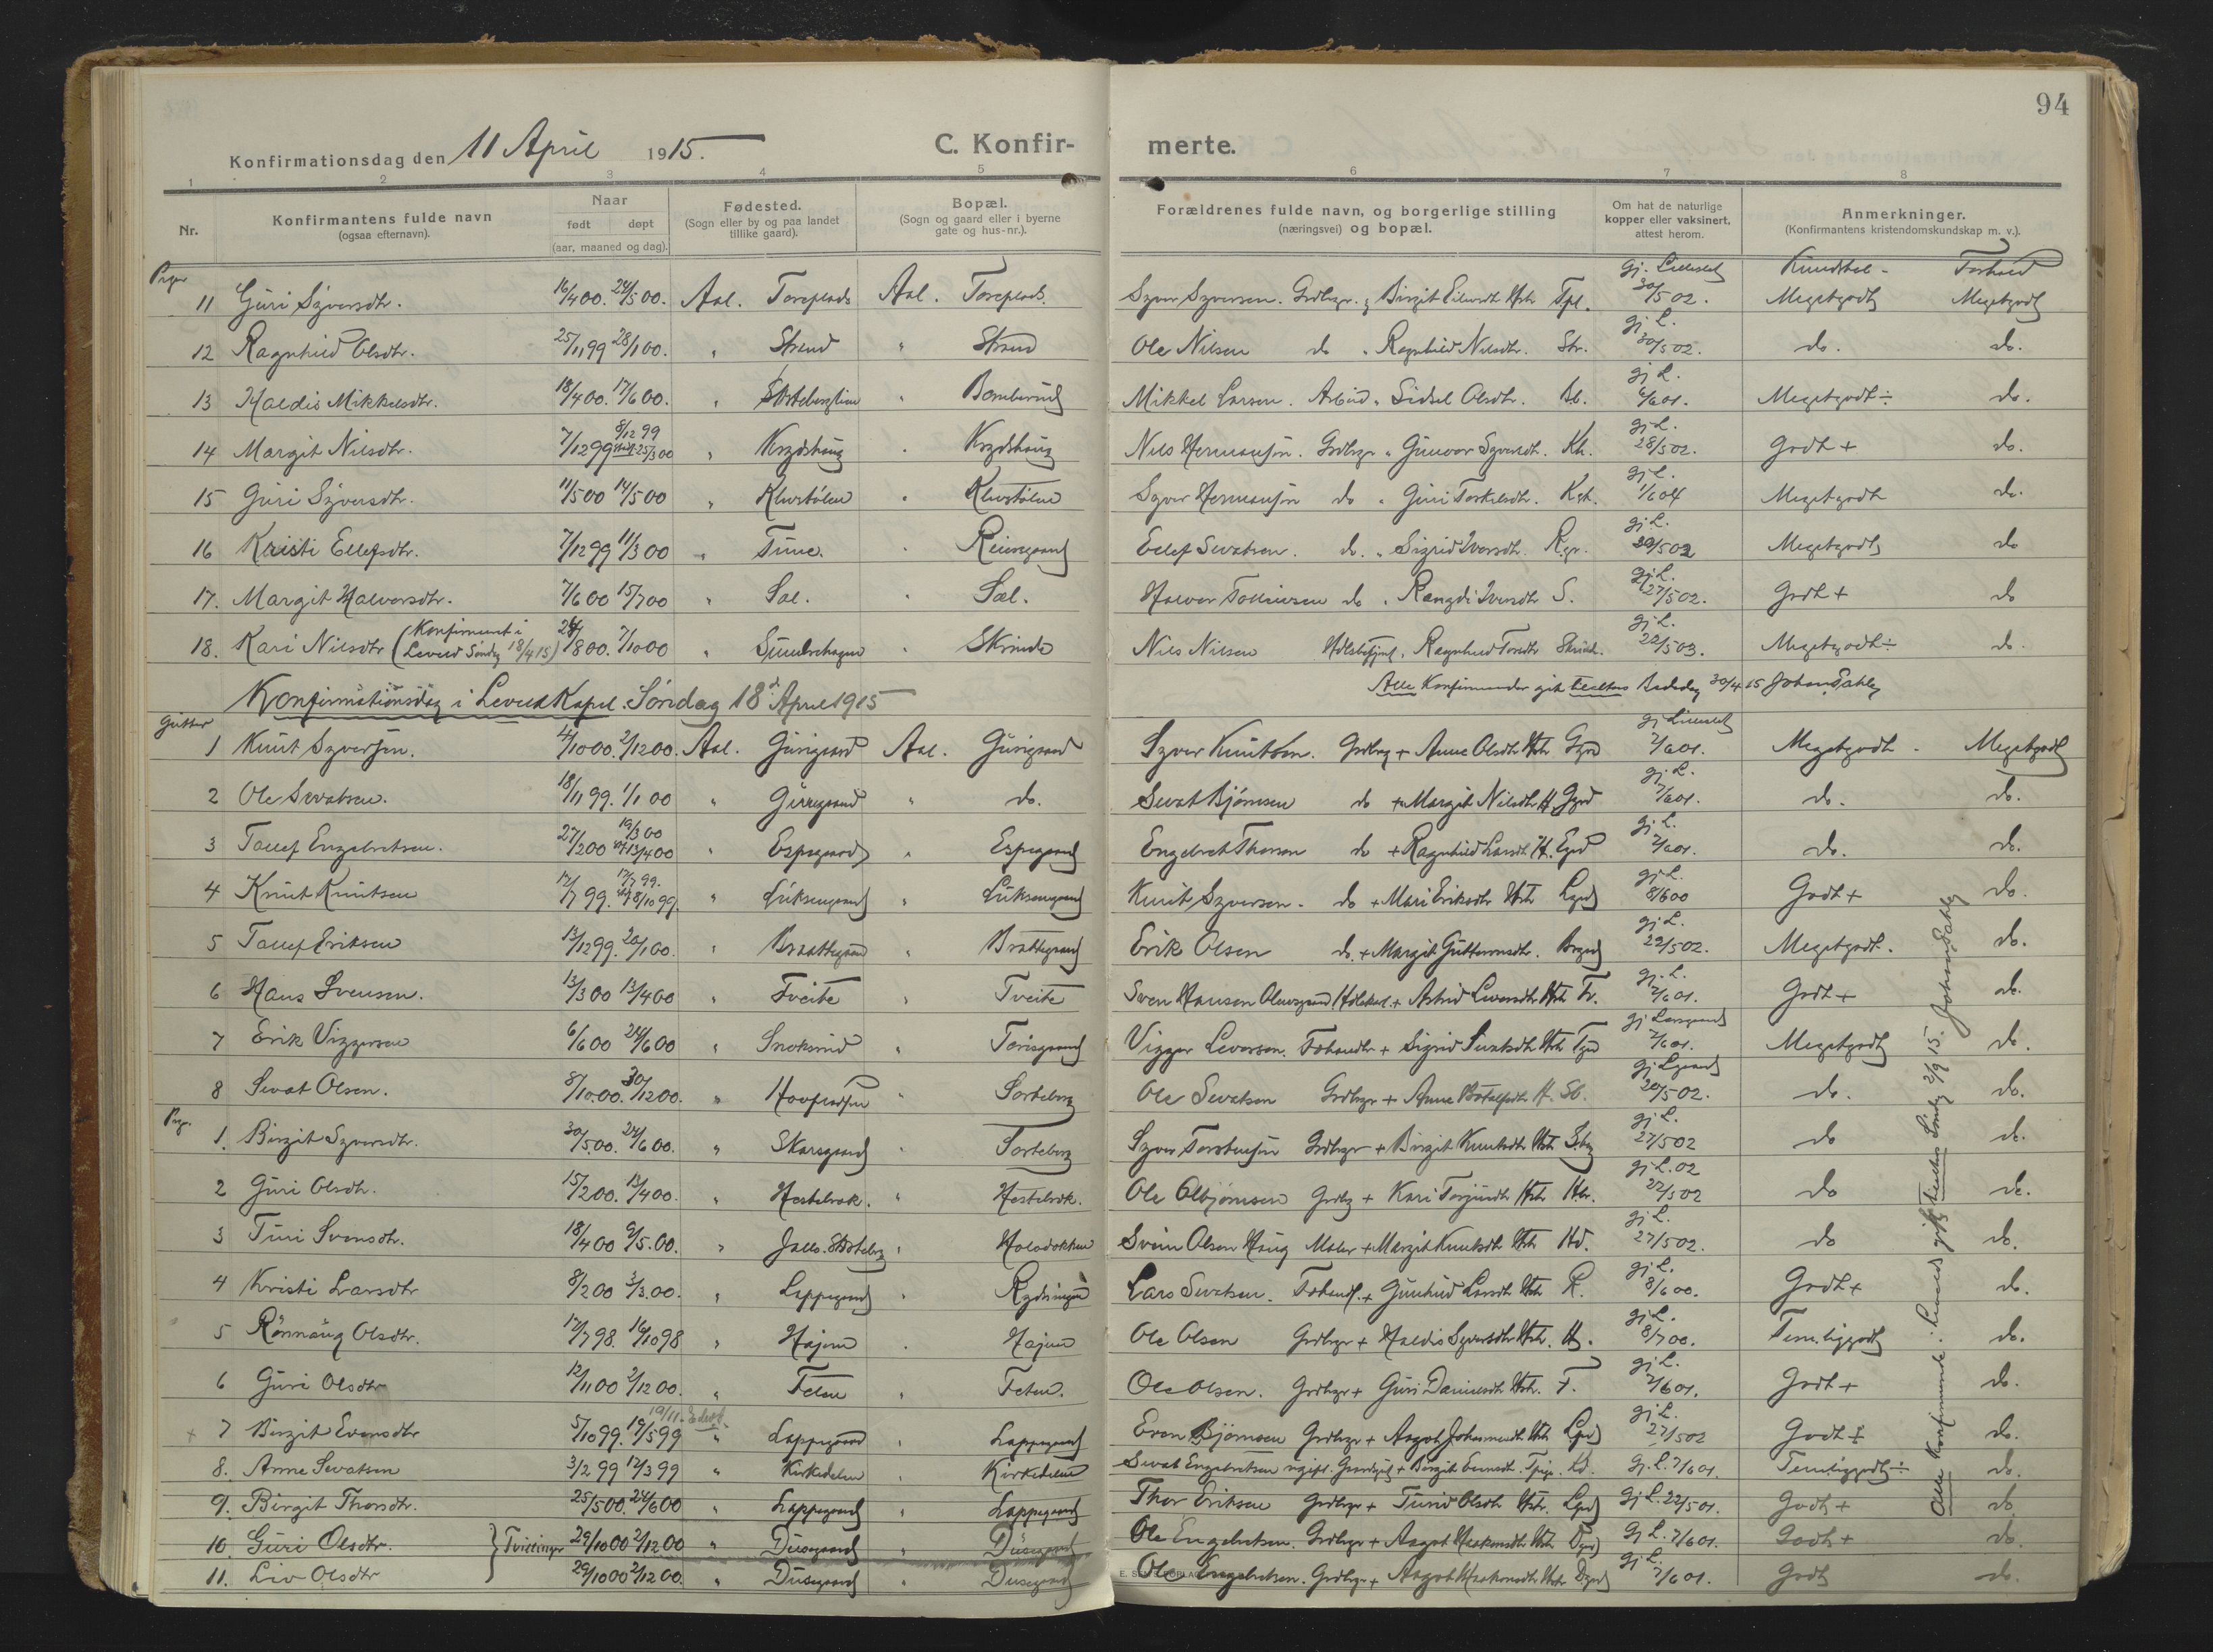 94
Konfirmationsdag den 11 April 1915. C. Konfir- merte.
1 2 3 4 5 6 7 8
Nr. Konfirmantens fulde navn (ogsaa efternavn). Naar født døpt (aar, maaned og dag). Fødested. (Sogn eller by og paa landet tillike gaard). Bopæl. (Sogn og gaard eller i byerne gate og hus-nr.). Forældrenes fulde navn, og borgerlige stilling (næringsvei) og bopæl. Om hat de naturlige kopper eller vaksinert, attest herom. Anmerkninger. (Konfirmantens kristendomskundskap m. v.).
Piger Kundskab - Forhold
11 Guri Syversdtr. 16/4 00. 24/5 00. Aal. Toreplads Aal. Toreplads. Syver Syversen. Grdbrgr. & Birgit Eilevsdtr Hstr Tpl. gj. Lilleslet 30/5 02. Megetgodt Megetgodt
12 Ragnhild Olsdtr. 25/11 99 28/1 00. " Strand " Strand Ole Nilsen do " Ragnhild Nilsdtr. Str. gj. L. 30/5 02. do. do.
13 Haldis Mikkelsdtr. 18/4 00. 17/6 00. " " Mikkel Larsen. Arbeid. " Sidsel Olsdtr. Bb. gj. L. 6/6 01. Megetgodt ÷ do.
14 Margit Nilsdtr. 7/12 99 8/12 99 25/3 00 " Krydshaug " Krydshaug Nils Hermansen. Grdbrgr " Gunvor Syversdtr. Kh. gj. L. 28/5 02. Godt + do.
15 Guri Syversdtr. 11/5 00 14/5 00 " Klevstølen " Klevstølen Syver Hermansen do " Guri Torkelsdtr. gj. L. 1/6 04 Megetgodt do.
16 Kristi Ellefsdtr. 7/12 99 11/3 00 " Tune. " Reinsgaard Ellef Sevatsen. do. " Sigrid Iversdtr. Rgr. gj. L. 30/5 02 Megetgodt do
17. Margit Halvorsdtr. 7/6 00 15/7 00 " Sal. " Sal. Halvor Tollevsen do " Rangdi Iversdtr S. gj. L. 27/5 02. Godt + do
18. Kari Nilsdtr (Konfirmeret i Leveld Søndag 18/4 15) 24/8 00. 7/10 00 " Sundrehagen " Skrinde Nils Nilsen " Ragnhild Toresdtr Skrind. gj. L. 22/5 03. Megetgodt ÷ do.
Alle Konfirmander gik tilalters Bededag 30/4 15 Johan Dahle
Konfirmationsdag i Leveld Kapel. Søndag 18d April 1915
Gutter
1 Knut Syversen. 4/10 00. 2/12 00. Aal. Gurigaard Aal. Gurigaard Syver Knutsen. Grdbrg + Anne Olsdtr Hstr Ggrd gj Lilleslet 7/6 01. Megetgodt - Megetgodt
2 Ole Sevatsen. 18/11 99. 1/1 00 " " do. Sevat Bjørnsen do + Margit Nilsdtr H. Ggrd gj. L. 7/6 01. do. do.
3 Tollef Engebretsen. 27/2 00 19/3 00 13/4 00 " Espegaard " Espegaard Engebret Thorsen do + Ragnhild Larsdt H. Egrd gj. L. 7/6 01. do. do.
4 Knut Knutsen 17/7 99. 17/7 99. 8/10 99. " Eriksengaard " Eriksengaard Knut Syversen. do + Mari Eriksdtr Hstr gj. L. 8/6 00 Godt + do.
5 Tollef Eriksen 13/12 99. 20/1 00. " Braattegaard " Bråttegaard Erik Olsen do. + Margit Guttormsdtr. Brgrd gj. L. 22/5 02. Megetgodt. do.
6 Hans Svensen. 13/3 00 13/4 00 " Tveite " Tveite Sven Hansen + Astrid Leversdtr Hstr Tv. gj. L. 7/6 01. Godt + do.
7 Erik Viggersen 6/6 00 24/6 00 " " Torisgaard Vigger Leversen. Fohandlr + Sigrid Sevatsdtr Hstr Tgrd gj. Larsgaard 7/6 01. Megetgodt do.
8 Sevat Olsen. 8/10.00. 30/12 00. " " Sorteberg Ole Sevatsen Grdbrgr + Anne Botolfsdtr H. Sb. gj Lgaard 20/5 02. do. do.
Pig.
1. Birgit Syversdtr. 30/5.00. 24/6 00. " Skarsgaard " Sorteberg Syver Torstensen Grdbrgr + Birgit Knutsdtr Hstr Sbg gj. L. 27/5 02 do do.
2 Guri Olsdtr. 15/2 00. 13/4 00. " Hestebrok. " Hestebrok. Ole Olbjørnsen Grdbrg + Kari Torjusdtr Hstr Hbr. gj. L. 02 22/5 02 do do.
3 Turi Svensdtr. 18/4 00 9/5.00. " " Holodokken Svein Olsen Haug Maler + Margit Knutsdtr Hstr Hd. gj. L. 27/5 02. do do.
4 Kristi Larsdtr 8/2 00 3/3.00. " Lappegaard " Lars Sevatsen. Fohandl. + Gunhild Larsdtr Hstr R. gj. L. 8/6 00. Godt + do.
5 Rønnaug Olsdtr. 17/7 98. 16/10 98 " Hajem " Hajem Ole Olsen Grdbrgr + Haldis Syversdtr Hstr. H. gj. L. 8/7 00. Temligodt do.
6 Guri Olsdtr 12/11 00 2/12 00. " Feten " Feten. Ole Olsen. Grdbrgr + Guri Danielsdtr Hstr. F. gj. L. 7/6 01. Godt + do.
+ 7 Birgit Evensdtr 5/10 99. 19/5 99 19/11 " Lappegaard " Lappegaard Even Bjørnsen Grdbrgr + Aagot Johannesdtr Hstr Lgrd gj. L. 27/5 02 Godt ± do.
8. Anne Sevatsen 3/2 99 12/3 99 " Kirkedelen " Kirkedelen Sevat Engebretsen ugift. + Birgit Evensdtr. Tpige. Kd. gj. L. 7/6 01. Temliggodt ÷ do.
9. Birgit Thorsdtr. 25/5 00. 24/6 00 " Lappegaard " Lappegaard Thor Eriksen Grdbrgr + Turid Olsdtr Hstr. Lgrd gj L. 22/5 01. Godt + do
10. Guri Olsdtr. } Tvillinger 29/10 00 2/12 00 " Dusegaard " Dusegaard Ole Engebretsen. Grdbrgr + Aagot Haakonsdtr Hstr Dgrd gj. L. 7/6 01. Godt + do.
11. Liv Olsdtr 29/10 00 2/12 00. " Dusegaard " Dusegaard Ole Engebretsen. Grdbrgr + Aagot Haakonsdtr Hstr Dgrd gj. L. 7/6 01. Godt do.
Alle Konfirmande i Leveld gik tilalters Søndag 2/9 15. Johan Dahle